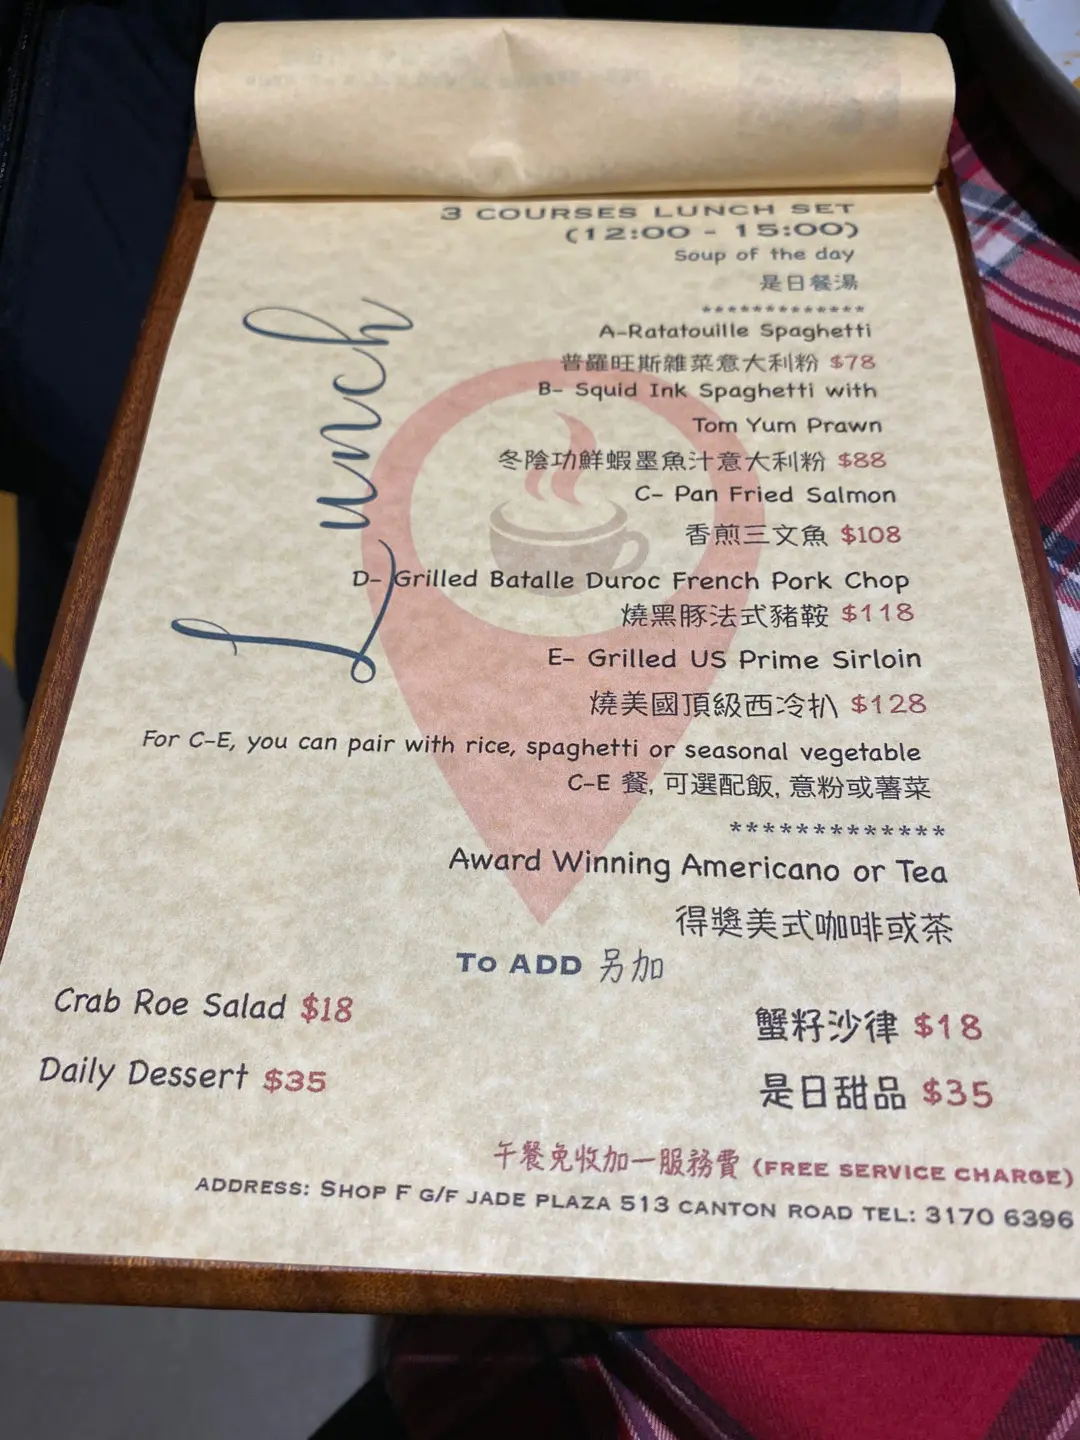 3 COURSES LUNCH SET
(12:00 - 15:00)
Soup of the day
是日餐湯
*************
Lunch
A-Ratatouille Spaghetti
普羅旺斯雜菜意大利粉 $78
B- Squid Ink Spaghetti with
Tom Yum Prawn
冬陰功鮮蝦墨魚汁意大利粉 $88
C- Pan Fried Salmon
香煎三文魚 $108
D- Grilled Batalle Duroc French Pork Chop
燒黑豚法式豬鞍 $118
E- Grilled US Prime Sirloin
燒美國頂級西冷扒 $128
For C-E, you can pair with rice, spaghetti or seasonal vegetable
C-E 餐, 可選配飯, 意粉或薯菜
*************
Award Winning Americano or Tea
得獎美式咖啡或茶
To ADD 另加
Crab Roe Salad $18
蟹籽沙律 $18
Daily Dessert $35
是日甜品 $35
午餐免收加一服務費 (FREE SERVICE CHARGE)
ADDRESS: SHOP F G/F JADE PLAZA 513 CANTON ROAD TEL: 3170 6396